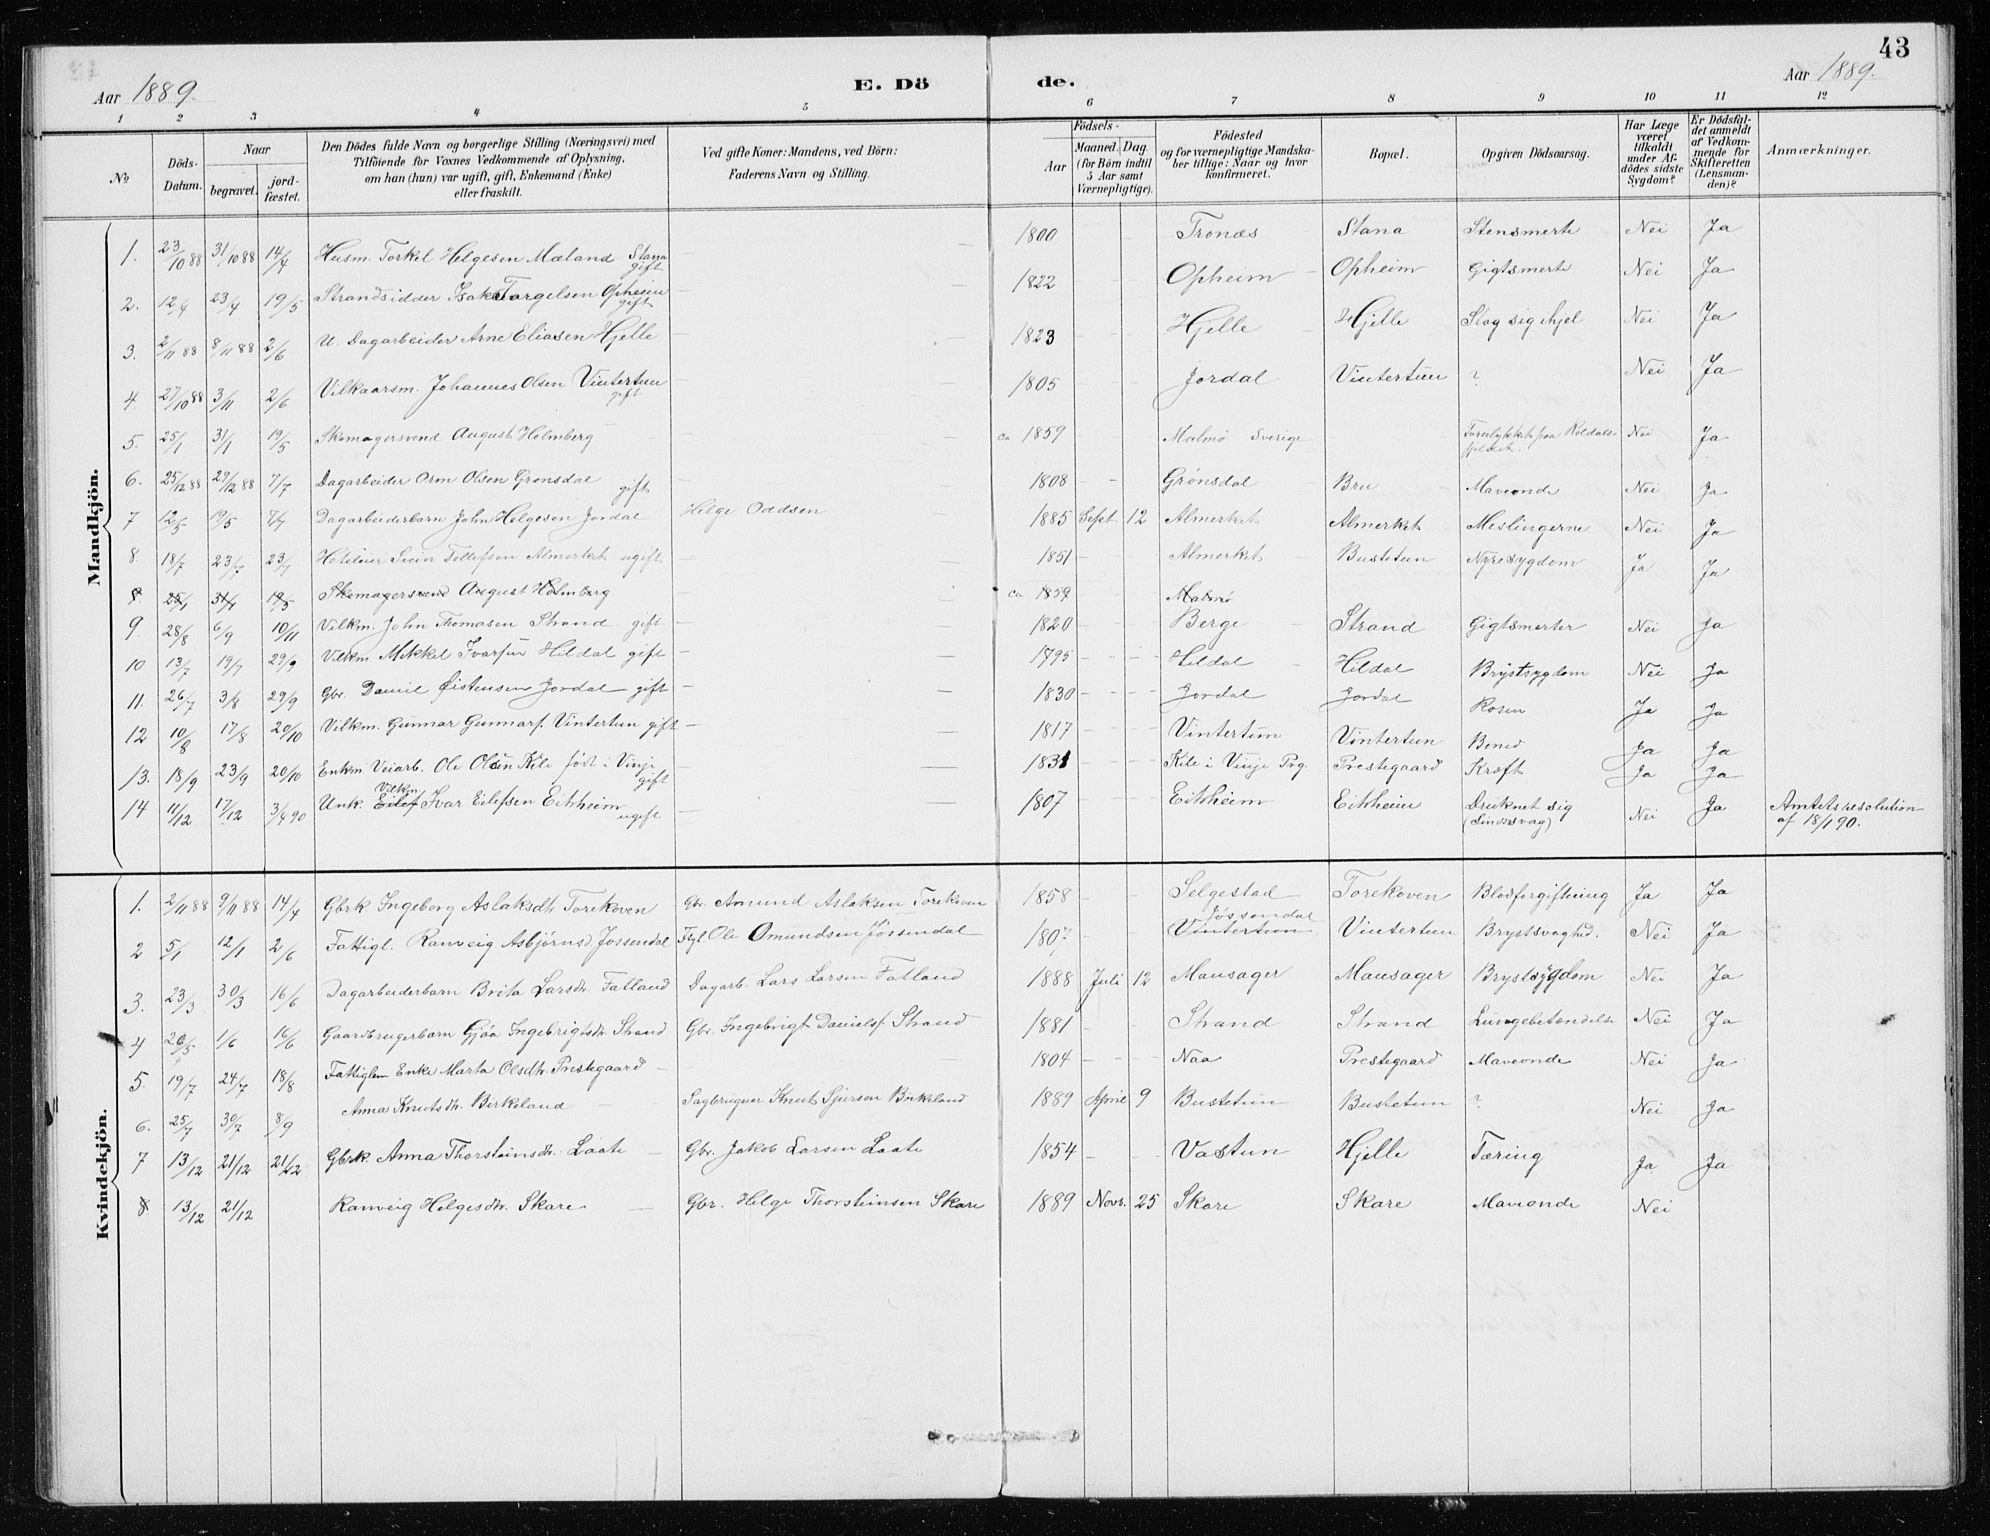 43
Aar 1889. E. Dö de. Aar 1889.
1 2 3 4 5 6 7 8 9 10 11 12
No
Döds-Datum.
Naar
begravet.
jord-fæstet.
Den Dödes fulde Navn og borgerlige Stilling (Næringsvei) med
Tilföiende for Voxnes Vedkommende af Oplysning,
om han (hun) var ugift, gift, Enkemand (Enke)
eller fraskilt.
Ved gifte Koner: Mandens, ved Börn:
Faderens Navn og Stilling.
Födsels-
Aar
Maaned. Dag
(for Börn indtil
5 Aar samt
Værnepligtige).
Födested
og for værnepligtige Mandska-
ber tillige: Naar og hvor
konfirmeret.
Bopæl.
Opgiven Dödsaarsag.
Har Læge
været
tilkaldt
under Af-
dödes sidste
Sygdom?
Er Dödsfal-
det anmeldt
af Vedkom-
mende for
Skifteretten
(Lensman-
den)?
Anmærkninger.
Mandkjön.
1. 23/10 88 31/10 88 14/4 Husm. Torkel Helgesen Mæland Stana gift — 1800 Tronæs Stana Stensmerte Nei Ja
2. 12/4 23/4 19/5 Strandsidder Isak Torgelsen Opheim gift — 1822 Opheim Opheim Gigtsmerte Nei Ja
3. 2/11 88 8/11 88 2/6 U. Dagarbeider Arne Eliasen Hjelle — 1823 Hjelle Hjelle Slog sig ihjel Nei Ja
4. 27/10 88 3/11 2/6 Vilkaarsm. Johannes Olsen Vintertun gift — 1805 Jordal Vintertun ? Nei Ja
5. 25/1 31/1 19/5 Skomagersvend August Holmberg — ca 1859 Malmø Sverige Forulykket paa Roldals-fjeldet. Nei Ja
6. 25/12 88 29/12 88 7/7 Dagarbeider Orm Olsen Grønsdal gift — 1808 Grønsdal Bru Maveonde Nei Ja
7 12/5 19/5 7/7 Dagarbeiderbarn John Helgesen Jordal Helge Oddsen 1885 Sept. 12 Almerket Almerket Meslingerne Nei Ja
8. 18/7 23/7 23/7 Hoteleier Svein Tollefsen Almerket ugift — 1851 Almerket Bustetun Nyresygdom Ja Ja
9. 25/1 31/1 19/5 Skomagersvend August Holmberg ca 1859 Malmø
9. 28/8 6/9 10/11 Vilkm. John Thomasen Strand gift — 1820 Berge Strand Gigtsmerter Nei Ja
10 13/7 19/7 29/9 Vilkm Mikkel Ivarsen Hildal gift — 1795 Hildal Hildal Brystsygdom Nei Ja
11. 26/7 3/8 29/9 Gbr. Daniel Øistensen Jordal gift — 1830 Jordal Jordal Rosen Ja Ja
12 10/8 17/8 20/10 Vilkm. Gunnar Gunnars. Vintertun gift — 1817 Vintertun Vintertun Bened Ja Ja
13. 18/9 23/9 20/10 Enkm Veiarb. Ole Olsen Kile født i Vinje gift — 1831 Kile i Vinje Prg. Prestegaard Kræft Ja Ja
14 11/12 17/12 3/4 90 Unk. Eilef Vilkm Ivar Eilefsen Eitrheim ugift — 1807 Eitrheim Eitrheim Druknet sig (Sindssvag) Nei Ja Amtets resolution af 18/1 90.
Kvindekjön.
1. 2/11 88 9/11 88 14/4 Gbrk Ingeborg Aslaksdtr. Torekoven Gbr. Amund Aslaksen Torekoven 1858 Selgestad Torekoven Blodforgiftning Ja Ja
2 5/1 12/1 2/6 Fattigl. Ranveig Asbjørnsd. Jøssendal Ftgl. Ole Omundsen Jøssendal 1807 Vintertun Jøssendal Vintertun Brystsvaghed. Nei Ja
3. 23/3 30/3 16/6 Dagarbeiderbarn Brita Larsdtr. Fatland Dagarb. Lars Larsen Fatland 1888 Juli 12 Mausager Mausager Brystsygdom Nei Ja
4 26/5 1/6 16/6 Gaardbrugerbarn Gjøa Ingebrigtsdtr. Strand Gbr. Ingebrigt Daniels. Strand 1881 Strand Strand Lungebetændelse Nei Ja
5. 19/7 24/7 18/8 Fattiglem Enke Marta Olsdtr. Prestegaard — 1804 Naa Prestegaard Maveonde Nei Ja
6. 25/7 30/7 8/9 Anna Knutsdtr. Birkeland Sagbruguer Knut Sjursen Birkeland 1889 April 9 Bustetun Bustetun ? Nei Ja
7 13/12 21/12 21/12 Gbrk. Anna Thorsteinsdtr. Laate Gbr. Jakob Larsen Laate 1854 Vastun Hjelle Tæring Ja Ja
8. 13/12 21/12 Ranveig Helgesdtr. Skare — Gbr. Helge Thorsteinsen Skare 1889 Novr. 25 Skare Skare Maveonde Nei